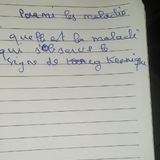 Parmi les maladie
quelle est la maladi
qui s'observe le
signe de